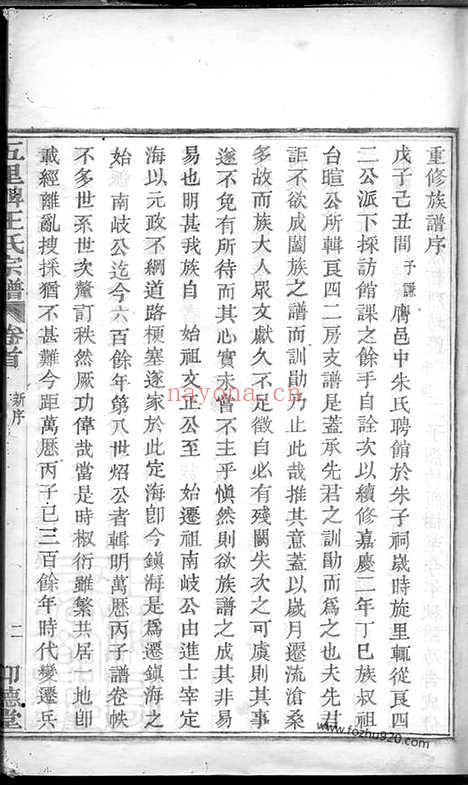 重修族譜序
戊子己丑間子謙膺邑中朱氏聘館於朱子祠歲時旋里輒從良四
二公派下採訪館課之餘手自詮次以續修嘉慶二年丁巳族叔祖
台暄公所輯良四二房支譜是蓋承先君之訓勖而為之也夫先君
詎不欲成闔族之譜而訓勖乃止此哉推其意蓋以歲月遷流滄桑
多故而族大人眾文獻久不足徵自必有殘闕失次之可虞則其事
遂不免有所待而其心實未嘗不主乎慎然則欲族譜之成其非易
易也明甚我族自 始祖文正公至 始遷祖南岐公由進士宰定
海以元政不綱道路梗塞遂家於此定海卽今鎮海是為遷鎮海之
始 南岐公迄今六百餘年第八世炤公者輯明萬歷丙子譜卷帙
不多世系世次釐訂秩然厥功偉哉當是時椒衍雖繁共居一地卽
載經離亂搜採猶不甚難今距萬歷丙子已三百餘年時代變遷兵
五里牌王氏宗譜 卷首 新序 二
nayona.cn
www.fozhu920.com